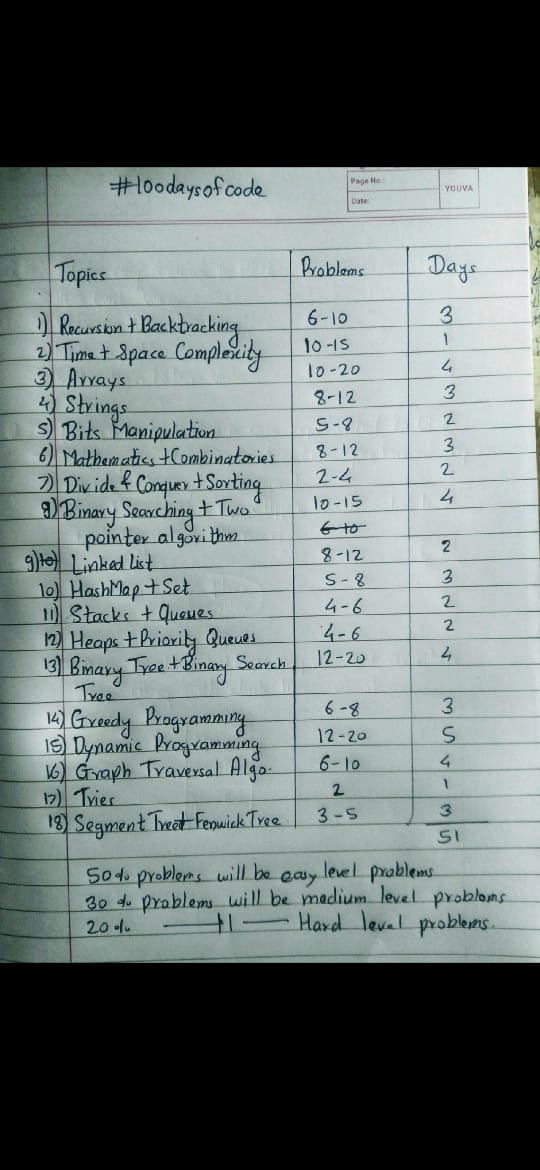 #100daysofcode
Page No.:
YOUVA
Date:
Topics Problems Days
1) Recursion + Backtracking 6-10 3
2) Time + Space Complexity 10-15 1
3) Arrays 10-20 4
4) Strings 8-12 3
5) Bits Manipulation 5-8 2
6) Mathematics + Combinatories 8-12 3
7) Divide & Conquer + Sorting 2-4 2
8) Binary Searching + Two 10-15 4
pointer algorithm 6-10
9) 10) Linked list 8-12 2
10) HashMap + Set 5-8 3
11) Stacks + Queues 4-6 2
12) Heaps + Priority Queues 4-6 2
13) Binary Tree + Binary Search 12-20 4
Tree
14) Greedy Programming 6-8 3
15) Dynamic Programming 12-20 5
16) Graph Traversal Algo. 6-10 4
17) Tries 2 1
18) Segment Tree + Fenwick Tree 3-5 3
51
50% problems will be easy level problems
30% problems will be medium level problems
20% —— 11 —— Hard level problems.